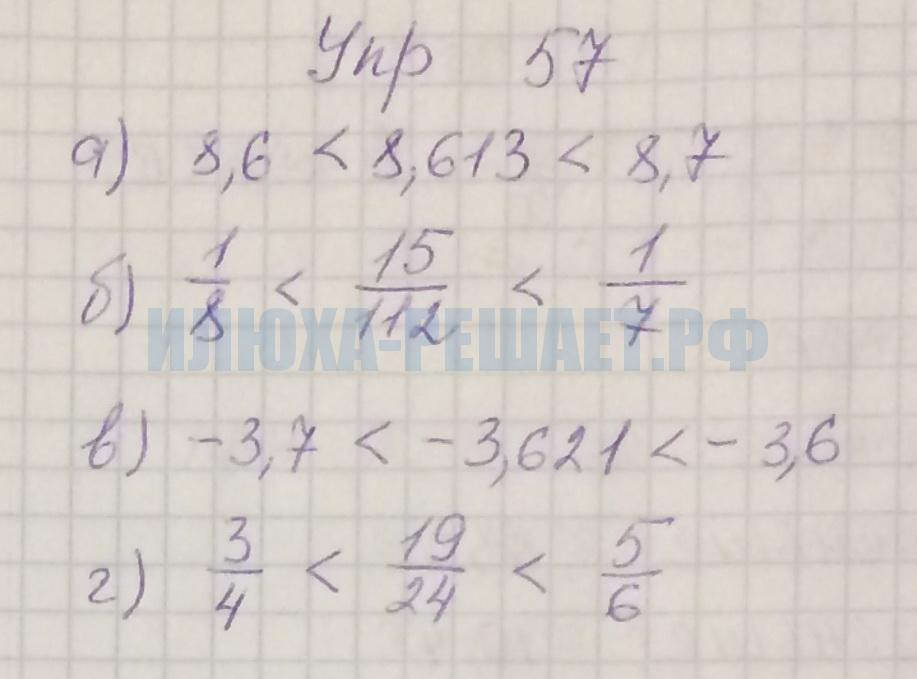 Упр 57
а) 8,6 < 8,613 < 8,7
б) 1/8 < 15/112 < 1/7
ИЛЮХА-РЕШАЕТ.РФ
в) -3,7 < -3,621 < -3,6
г) 3/4 < 19/24 < 5/6